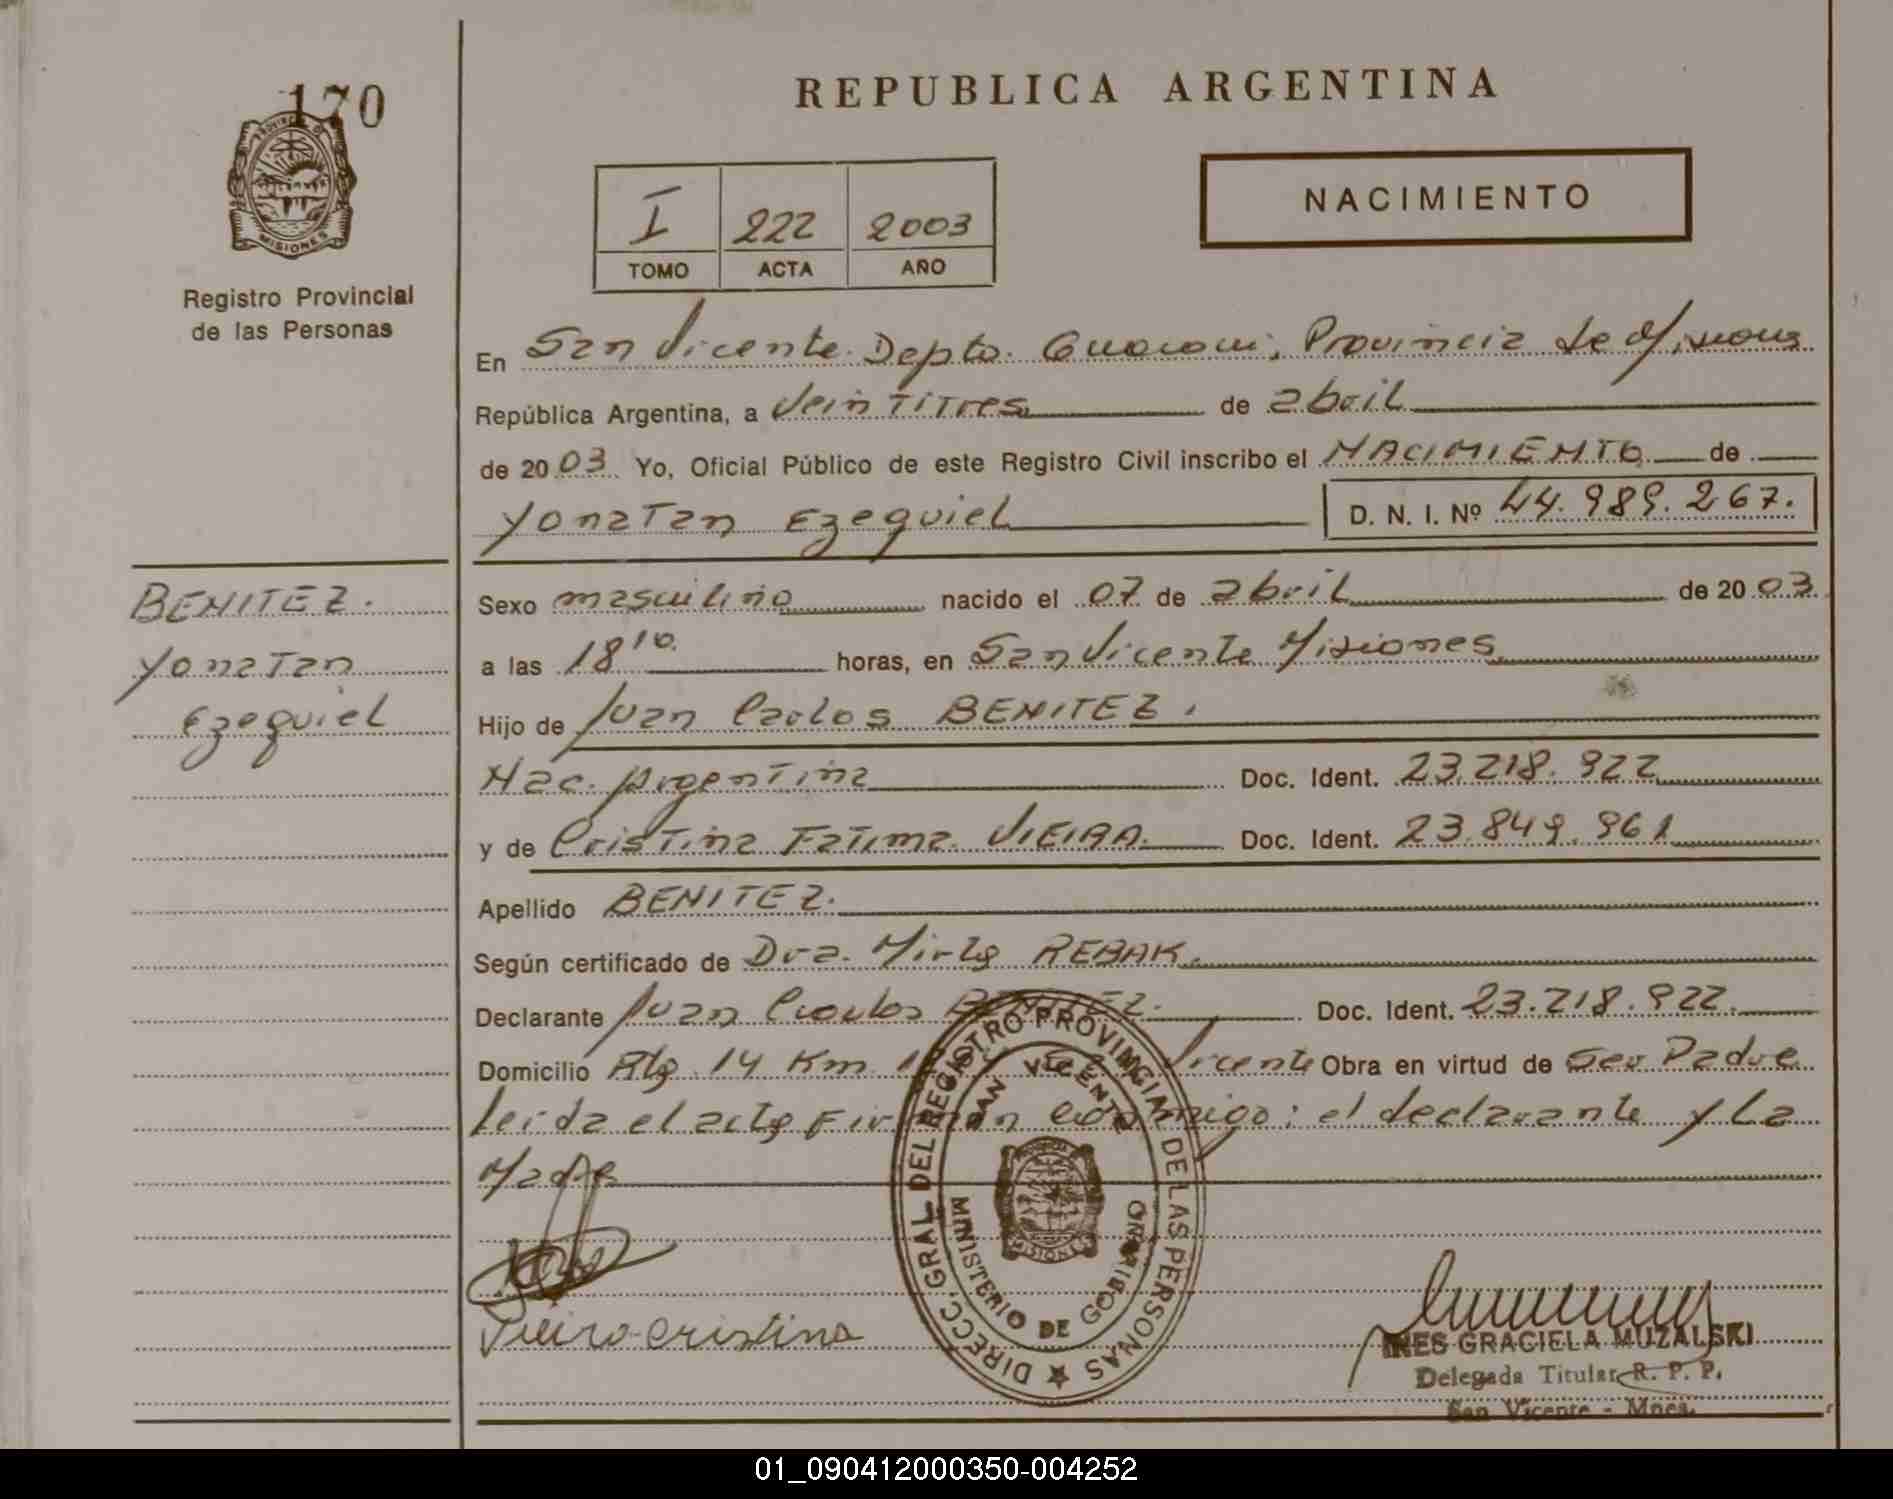 170
PROVINCIA DE
MISIONES
Registro Provincial
de las Personas
BENITEZ.
Yonatan
Ezequiel
REPUBLICA ARGENTINA
I 222 2003
TOMO ACTA AÑO
NACIMIENTO
En San Vicente. Depto. Guarani, Provincia de Misiones
República Argentina, a Veintitres de abril
de 2003 Yo, Oficial Público de este Registro Civil inscribo el NACIMIENTO de
Yonatan Ezequiel D. N. I. Nº 44.989.267.
Sexo masculino nacido el 07 de abril de 2003.
a las 18 10. horas, en San Vicente Misiones
Hijo de Juan Carlos BENITEZ.
Nac. Argentina Doc. Ident. 23.218.922
y de Cristina Fatima VIEIRA. Doc. Ident. 23.849.961
Apellido BENITEZ.
Según certificado de Dra. Mirta REBAK.
Declarante Juan Carlos BENITEZ. Doc. Ident. 23.218.922.
Domicilio Rta 14 Km. Vicente Obra en virtud de Ser Padre
leida el acta Firman conmigo: el declarante y La
Madre
DIRECC. GRAL. DEL REGISTRO PROVINCIAL DE LAS PERSONAS
SAN VICENTE
MISIONES
MINISTERIO DE GOBIERNO
Vieira Cristina
INES GRACIELA MUZALSKI
Delegada Titular R. P. P.
San Vicente - Mnes.
01_090412000350-004252